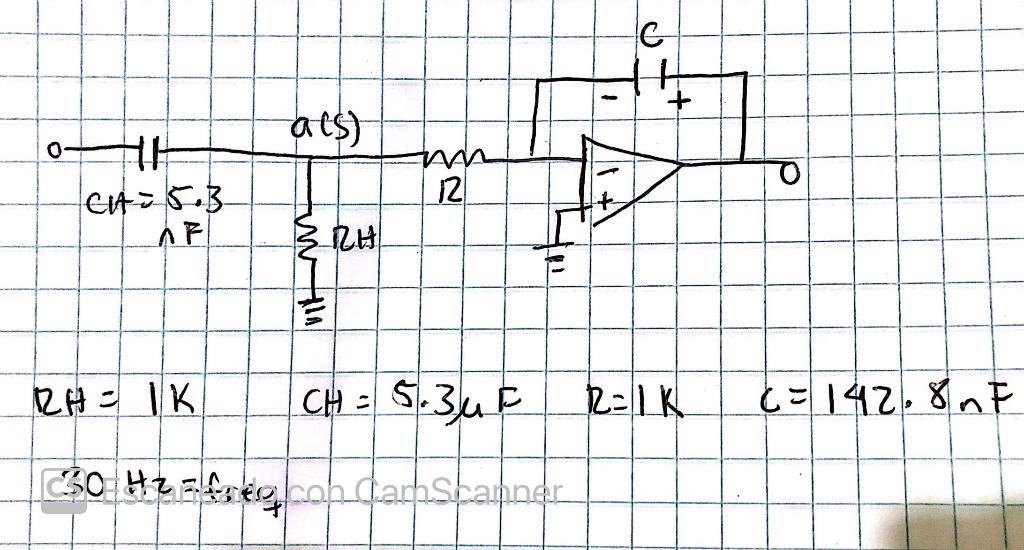 C
- +
a(s)
CH = 5.3
nF
R
-
+
RH
RH = 1K CH = 5.3μF R=1K C=142.8nF
30 Hz = freq
CS Escaneado con CamScanner